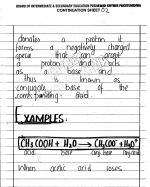 BOARD OF INTERMEDIATE & SECONDARY EDUCATION PESHAWAR KHYBER PAKHTUNKHWA
CONTINUATION SHEET 02
donates a proton it
forms a negatively charged
specie that can accept
a proton and acts
as a base and
thus is known as
conjugate base of the
corresponding acid.
EXAMPLES:
CH₃COOH + H₂O ⟶ CH₃COO⁻ + H₃O⁺
acid base conj. base conj. acid
When acetic acid loses